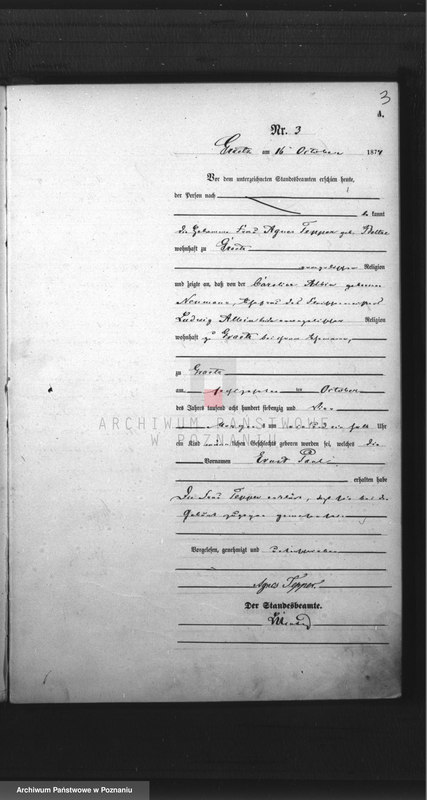 3
A.
Nr. 3
Graetz am 16 October 1874
Vor dem unterzeichneten Standesbeamten erschien heute,
der Persönlichkeit nach
kannt
die Hebamme Frau Agnes Tepper geb.
wohnhaft zu Graetz
evangelischer Religion
und zeigte an, daß von der Caroline Albin geborene
Neumann, Ehefrau des
Ludwig Albin beide evangelischer Religion
wohnhaft zu Graetz bei ihrem Ehemann,
zu Graetz
am October
des Jahres tausend acht hundert siebenzig und vier
Morgens um 3 ein halb Uhr
ein Kind männlichen Geschlechts geboren worden sei, welches die
Vornamen Ernst Paul
erhalten habe
Die Frau Tepper erklärte, daß sie bei der
Geburt zugegen gewesen sei
Vorgelesen, genehmigt und unterschrieben
Agnes Tepper
Der Standesbeamte.
ARCHIWUM PAŃSTWOWE
W POZNANIU
Archiwum Państwowe w Poznaniu